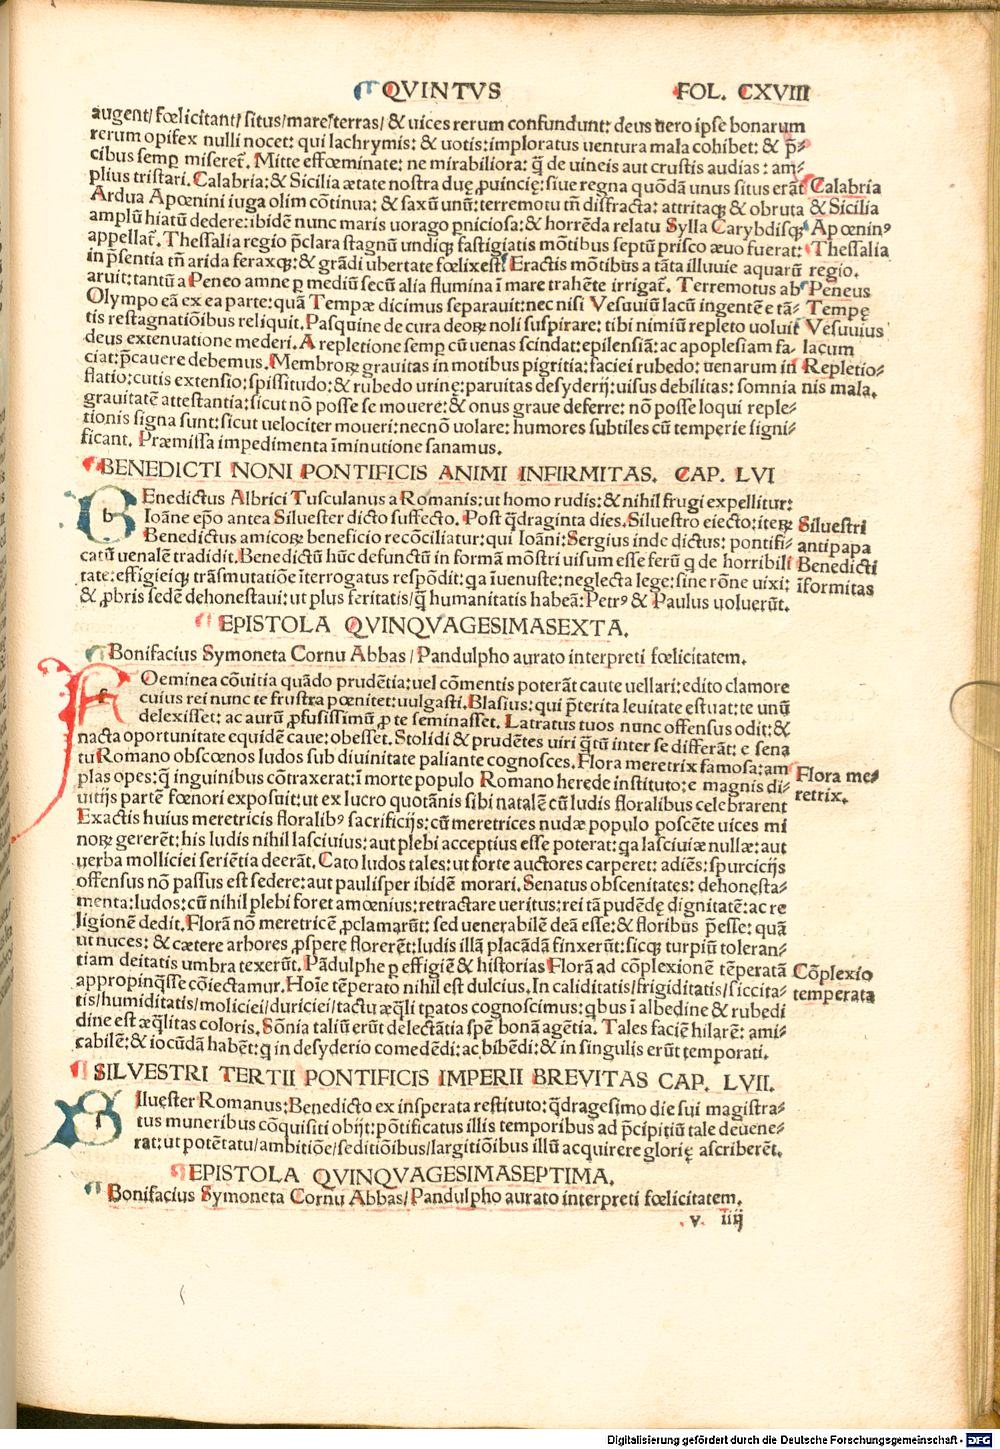 QVINTVS FOL. CXVIII
augent/ fœlicitant/ situs/ mare/ terras/ & uices rerum confundunt: deus uero ipse bonarum
rerum opifex nulli nocet: qui lachrymis: & uotis: imploratus uentura mala cohibet: & p̄-
cibus semꝑ miseret̄. Mitte effœminate: ne mirabiliora: q̄ de uincis aut crustis audias: am-
plius tristari. Calabria: & Sicilia ætate nostra duę ꝓuincię: siue regna quōdā unus situs erāt
Calabria
Ardua Apœnini iuga olim cōtinua: & saxū unū: terremotu tn̄ diffracta: attritaqꝫ & obruta
& Sicilia
amplū hiatū dedere: ibidē nunc maris uorago ꝑniciosa: & horrēda relatu Sylla Carybdisqꝫ
Apœninꝰ
appellat̄. Thessalia regio p̄clara stagnū undiqꝫ fastigiatis mōtibus septū prisco æuo fuerat:
Thessalia
in p̄sentia tn̄ arida feraxqꝫ: & grādi ubertate fœlix est. Eractis mōtibus a tāta illuuie aquarū
regio.
aruit: tantū a Peneo amne ꝑ mediū secū alia flumina ī mare trahēte irrigat̄. Terremotus ab
Peneus
Olympo eā ex ea parte: quā Tempæ dicimus separauit: nec nisi Vesuuiū lacū ingentē e tā-
Tempę
tis restagnatiōibus reliquit. Pasquine de cura deoꝝ noli suspirare: tibi nimiū repleto uoluit
Vesuuius
deus extenuatione mederi. A repletione semꝑ cū uenas scindat: epilensiā: ac apoplesiam fa-
lacum
ciat: p̄cauere debemus. Membroꝝ grauitas in motibus pigritia: faciei rubedo: uenarum in
Repletio-
flatio: cutis extensio: spissitudo: & rubedo urinę: paruitas desyderij: uisus debilitas: somnia
nis mala.
grauitatē attestantia: sicut nō posse se mouere: & onus graue deferre: nō posse loqui reple-
tionis signa sunt: sicut uelociter moueri: necnō uolare: humores subtiles cū temperie signi-
ficant. Præmissa impedimenta īminutione sanamus.
BENEDICTI NONI PONTIFICIS ANIMI INFIRMITAS. CAP. LVI
b Enedictus Albrici Tusculanus a Romanis: ut homo rudis: & nihil frugi expellitur:
Ioāne ep̄o antea Siluester dicto suffecto. Post q̄draginta dies. Siluestro eiecto: iteꝝ
Siluestri
Benedictus amicoꝝ beneficio recōciliatur: qui Ioāni: Sergius inde dictus: pontifi-
antipapa
catū uenalē tradidit. Benedictū hūc defunctū in formā mōstri uisum esse ferū q de horribili
Benedicti
tate: effigieiqꝫ trāsmutatiōe īterrogatus respōdit: qa īuenuste: neglecta lege: sine rōne uixi:
īformitas
& ꝓbris sedē dehonestaui: ut plus feritatis/ q̄ humanitatis habeā: Petrꝰ & Paulus uoluerūt.
EPISTOLA QVINQVAGESIMASEXTA.
Bonifacius Symoneta Cornu Abbas/ Pandulpho aurato interpreti fœlicitatem.
f Oeminea cōuitia quādo prudētia: uel cōmentis poterāt caute uellari: edito clamore
cuius rei nunc te frustra pœnitet: uulgasti. Blasius: qui p̄terita leuitate estuat: te unū
delexisset: ac aurū ꝓfusissimū ꝓ te seminasset. Latratus tuos nunc offensus odit: &
nacta oportunitate equidē caue: obesset. Stolidi & prudētes uiri q̄tū inter se differāt: e sena
tu Romano obscœnos ludos sub diuinitate paliante cognosces. Flora meretrix famosa: am
plas opes: q̄ inguinibus cōtraxerat: ī morte populo Romano herede instituto: e magnis di-
Flora me-
uitijs partē fœnori exposuit: ut ex lucro quotānis sibi natalē cū ludis floralibus celebrarent
retrix.
Exactis huius meretricis floralibꝰ sacrificijs: cū meretrices nudæ populo poscēte uices mi
noꝝ gererēt: his ludis nihil lasciuius: aut plebi acceptius esse poterat: qa lasciuiæ nullæ: aut
uerba molliciei seriētia deerāt. Cato ludos tales: ut forte auctores carperet: adiēs: spurcicijs
offensus nō passus est sedere: aut paulisper ibidē morari. Senatus obscenitates: dehonesta-
menta: ludos: cū nihil plebi foret amœnius: retractare ueritus: rei tā pudēdę dignitatē: ac re
ligionē dedit. Florā nō meretricē ꝓclamarūt: sed uenerabilē deā esse: & floribus p̄esse: quā
ut nuces: & cætere arbores ꝓspere florerēt: ludis illā placādā finxerūt: sicqꝫ turpiū toleran-
tiam deitatis umbra texerūt. Pādulphe ꝑ effigiē & historias Florā ad cōplexionē tēperatā
Cōplexio
appropinq̄sse cōiectamur. Hoīe tēperato nihil est dulcius. In caliditatis/ frigiditatis/ siccita-
temperata
tis/ humiditatis/ moliciei/ duriciei/ tactu æq̄li tp̄atos cognoscimus: qbus ī albedine & rubedi
dine est æq̄litas coloris. Sōnia taliū erūt delectātia spē bonā agētia. Tales faciē hilarē: ami-
cabilē: & iocūdā habēt: q in desyderio comedēdi: ac bibēdi: & in singulis erūt temporati.
SILVESTRI TERTII PONTIFICIS IMPERII BREVITAS CAP. LVII.
s Iluester Romanus: Benedicto ex insperata restituto: q̄dragesimo die sui magistra-
tus muneribus cōquisiti obijt: pōtificatus illis temporibus ad p̄cipitiū tale deuene-
rat: ut potētatu/ ambitiōe/ seditiōibus/ largitiōibus illū acquirere glorię ascriberēt.
EPISTOLA QVINQVAGESIMASEPTIMA.
Bonifacius Symoneta Cornu Abbas/ Pandulpho aurato interpreti fœlicitatem.
v iiij
Digitalisierung gefördert durch die Deutsche Forschungsgemeinschaft - DFG